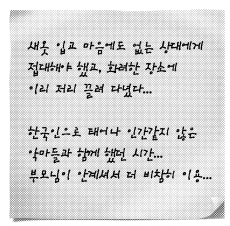 새옷 입고 마음에도 없는 상대에게
접대해야 했고, 화려한 장소에
이리 저리 끌려 다녔다...
한국인으로 태어나 인간같지 않은
악마들과 함께 했던 시간...
부모님이 안계셔서 더 비참히 이용...